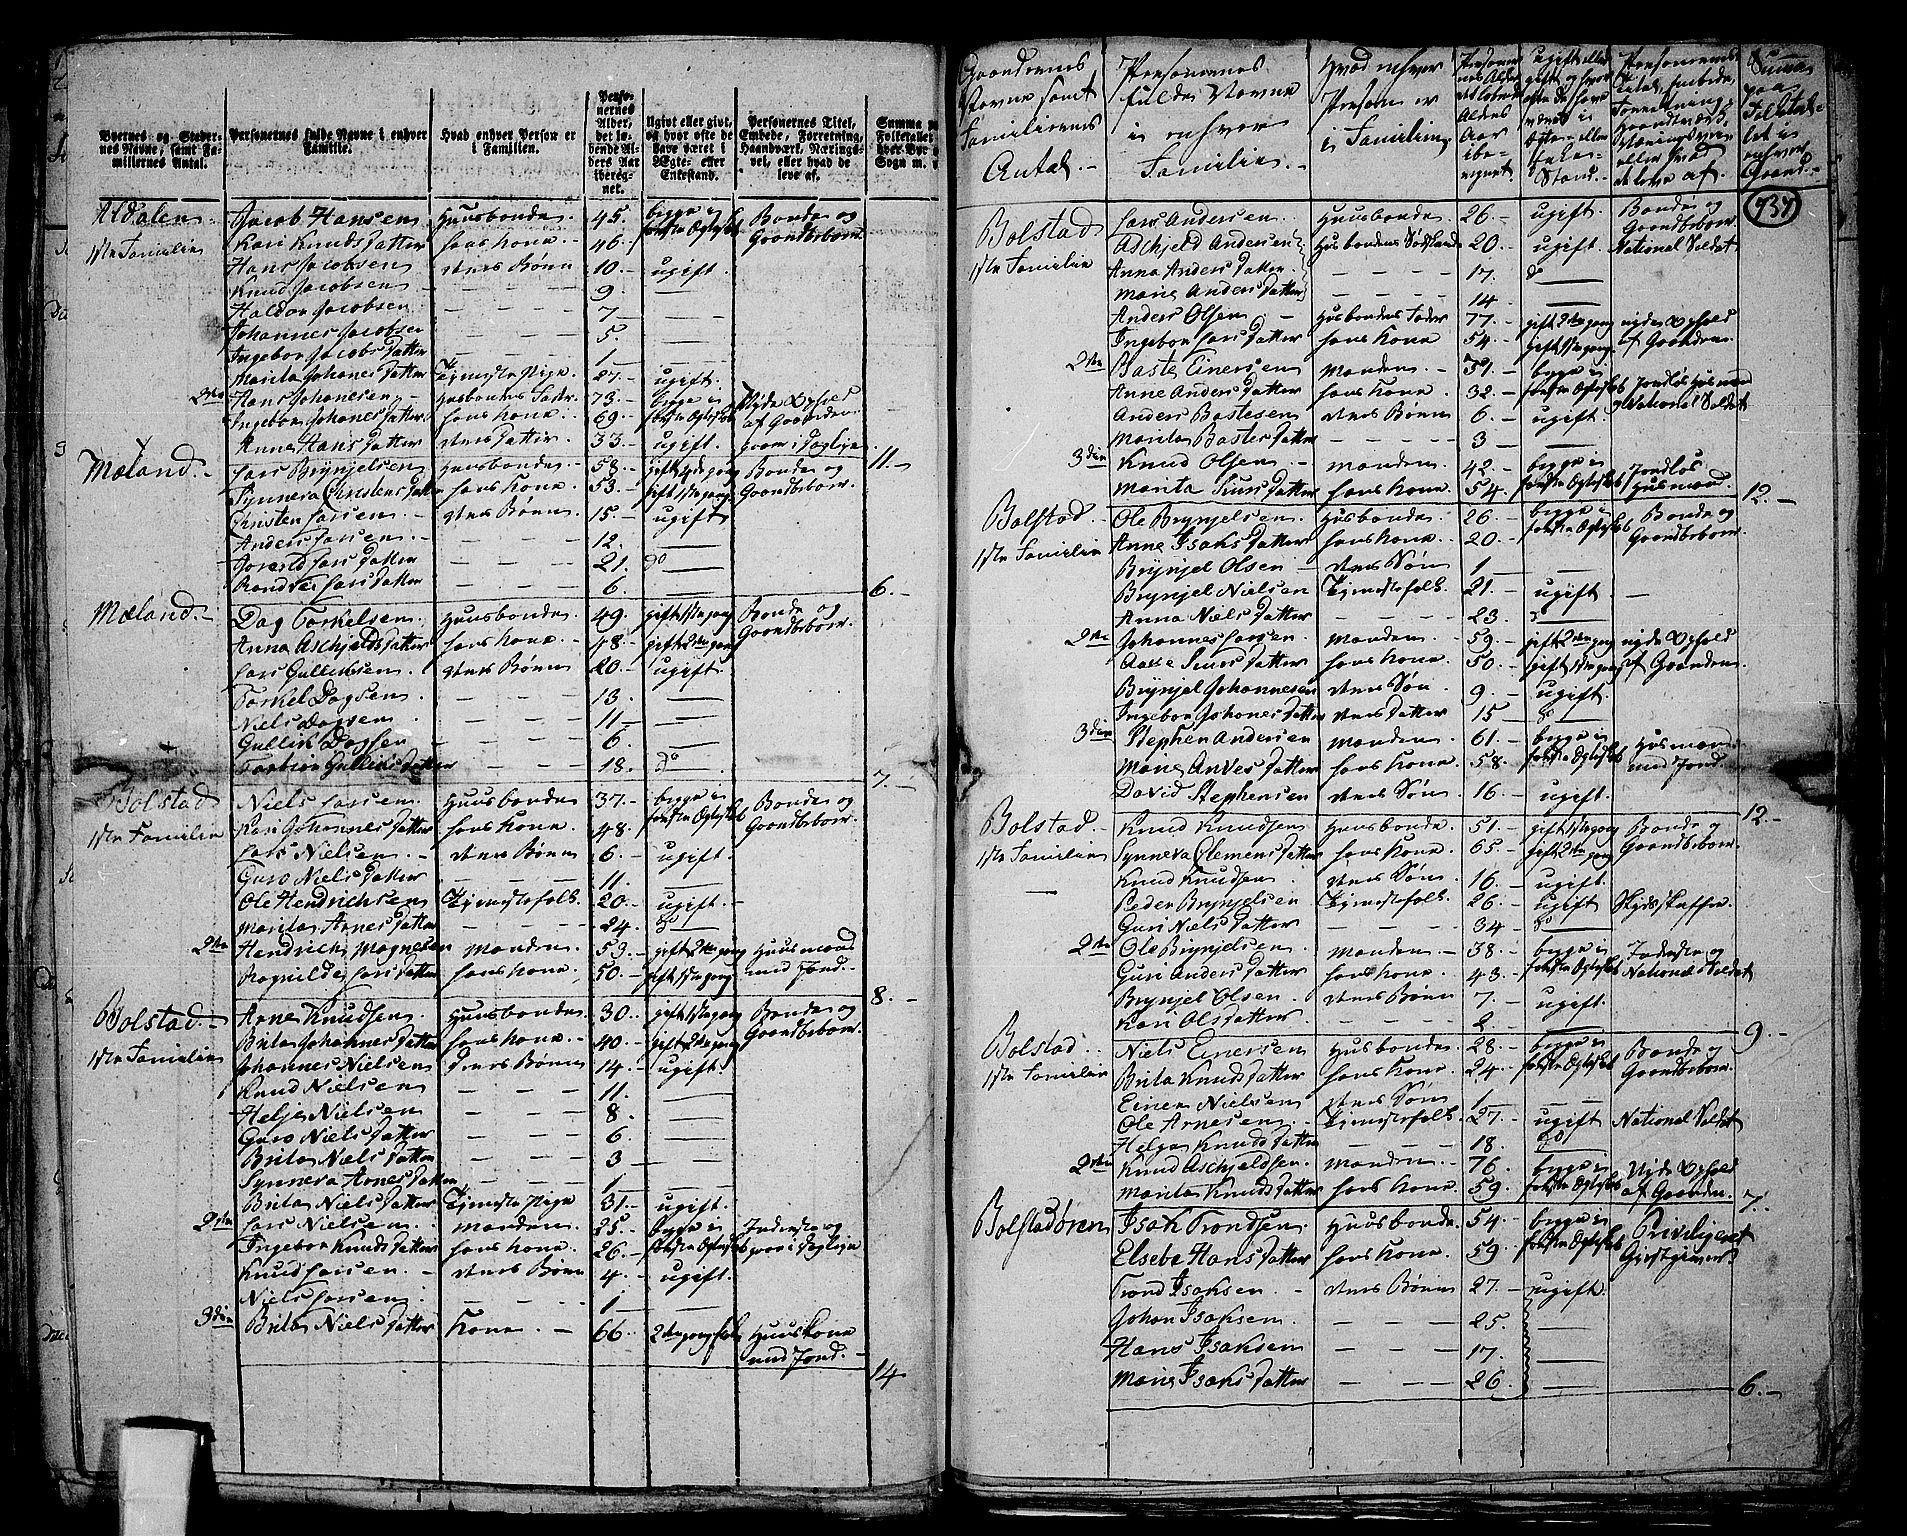 Byernes- og Steder-
nes Navne, samt Fa-
miliernes Antal.
Personernes fulde Navne i enhver
Familie.
Hvad enhver Person er
i Familien.
Perso-
nernes
Alder,
det lø-
bende Al-
ders Aar
iberegn-
net.
Ugivt eller givt,
og hvor ofte de
have været i
Ægte- eller
Enkestand.
Personernes Titel,
Embede, Forretning,
Haandværk, Nærings-
vei, eller hvad de
leve af.
Summa
Folketallet
hver By
Sogn
Jacob Hansen Huusbonde 45. begge i Bonde og
1ste Familie Kari Knuds datter hans Kone 46. første Ægteskab Gaardbeboer.
Hans Jacobsen deres Børn 10. ugift.
Knud Jacobsen — — — 9
Haldor Jacobsen — — — 7
Johannes Jacobsen — — — 5.
Ingebor Jacobs datter — — — 1
Marita Johanes datter Tjeneste Pige 27. ugift.
2den Hans Johanesen Husbondes Fader 73. begge i Nyde Ophold
Ingebor Johanes datter hans Kone 69. første Ægteskab af Gaarden
Anna Hans datter deres datter 33. ugift. gaar i Dagleie 11.
Mæland. Lars Brynjelsen Huusbonde 58. Bonde og
Synneva Christens datter hans Kone 53. gift 1ste gang Gaardbeboer.
Christen Larsen deres Børn 15. ugift
Anders Larsen — — — 12.
Lars datter — — — 21. do
Lars datter — — — 6. — 6.
Mæland Dag Torkelsen. Huusbonde 49. gift 1ste gang Bonde og
Anna Aschjelds datter hans Kone 48. gift 2den gang Gaardbeboer.
Lars Gulliksen deres Børn 20. ugift
Torkel Dagsen — — — 13.
Niels Dagsen — — — 11
Gullik Dagsen — — — 6.
Gulliks datter — — — 18. do 7.
Bolstad Niels Larsen Huusbonde 37. begge i Bonde og
1ste Familie Kari Johannes datter hans Kone. 48. første Ægteskab Gaardbeboer.
Lars Nielsen. deres Børn 6. ugift
Guro Niels datter — — — 11.
Ole Hendrichsen Tjenestefolk. 20. ugift.
Marita Arnes datter — — — 24. do
2den Hendrich Magnesen Manden 53. gift 2den gang Huusmand
Ragnilde Lars datter hans Kone. 50. gift 1ste gang med Jord. 8.
Bolstad. Arne Knudsen. Huusbonde 30. gift 1ste gang Bonde og
1ste Familie Brita Johannes datter hans Kone 40. gift 2den gang Gaardbeboer.
Johannes Nielsen deres Børn 14. ugift.
Knud Nielsen — — — 11.
Helje Nielsen — — — 8
Guro Niels datter — — — 6.
Brita Niels datter — — — 3
Synneva Arnes datter — — — 1
Brita Niels datter Tjeneste Pige 31. ugift.
2den Lars Nielsen. Manden 25. begge i Inderste og
Ingebor Knuds datter hans Kone. 26. første Ægteskab gaar i Dagleie
Knud Larsen. deres Børn 4. ugift.
Niels Larsen. — — — 1
3die Brita Niels datter Kone. 66. Huuskone
med Jord. 14
Gaardenes
Navne samt
Familiernes
Antal
Personernes
fulde Navne
i enhver
Familie.
Hvad enhver
Person er
i Familien
Personer-
nes Alder
det løbende
Alders
Aar
ibe-
regnet
ugift eller
gift og hvor
ofte de have
været i
Ægte eller
Enke-
Stand.
Personernes
Titel, Embede,
Forretning,
Haandværk,
Næringsvei
eller hvad
de leve af.
Summa
paa
Folketal-
let i
enhver
Gaard.
937
Bolstad Lars Andersen Huusbonde 26. ugift. Bonde og
Gaardbeboer.
1ste Familie Aschjeld Andersen Husbondens Sødskende 20. ugift National Soldat
Anna Anders datter — — — 17. do
Marie Anders datter — — — 14
Anders Olsen Husbondens Fader 77. gift 2den gang nyde Ophold
Ingebor Lars datter hans Kone 54. gift 1ste gang af Gaarden.
2den Baste Einersen Manden 37. begge i
Anne Anders datter hans Kone 32. første Ægteskab Jordløs Husmand
Anders Bastesen deres Børn 6. ugift og National Soldat
Marita Bastes datter — — — 3
3die Knud Olsen Manden 42. begge i Jordløs
Marita datter hans Kone. 54. første Ægteskab Husmand. 12.
Bolstad Ole Brynjelsen. Husbonde 26. begge i Bonde og
1ste Familie Anne Isaks datter hans Kone 20. første Ægteskab Gaardbeboer.
Brynjel Olsen deres Søn 1
Brynjel Nielsen Tjenestefolk. 21. ugift.
Anna Niels datter 23. do
2den Johannes Larsen. Manden 59. gift 2den gang nyde Ophold
datter hans Kone. 50. gift 1ste gang af Gaarden.
Brynjel Johannesen deres Søn 9. ugift
Ingebor Johanes datter deres datter 15 do
3die Stephen Andersen Manden. 61. begge i Husmand
Marie datter hans Kone. 58. første Ægteskab med Jord.
David Stephensen deres Søn. 16. ugift. 12.
Bolstad. Knud Knudsen Huusbonde. 51. gift 1ste gang Bonde og
1ste Familie Synneva Clemens datter hans Kone. 65. gift 2den gang Gaardbeboer.
Knud Knudsen deres Søn 16. ugift.
Peder Brynjelsen Tjenestefolk. 26. ugift Skydsskaffer.
Guri Niels datter — — — 34 do
2den Ole Brynjelsen. Manden 38. begge i Inderste og
Guri Anders datter hans Kone 43. første Ægteskab National Soldat
Brynjel Olsen deres Børn 7. ugift
Kari Ols datter — — — 2 9.
Bolstad. Niels Einersen Husbonde 28. begge i Bonde og
1ste Familie Brita Knuds datter hans Kone 24. første Ægteskab Gaardbeboer.
Einer Nielsen deres Søn 1
Ole Arnesen. Tjenestefolk 27. ugift National Soldat
Helga Knuds datter — — — 18. do
2den Knud Aschjeldsen. Manden 76. begge i Nyde Ophold
Marita Knuds datter hans Kone 59. første Ægteskab af Gaarden. 7.
Bolstadøren Isak Trondsen Huusbonde. 54. begge i Priviligeret
Elsebe Hans datter hans Kone. 59. første Ægteskab Giestgiver
Trond Isaksen. deres Børn 27. ugift.
Johan Isaksen. — — — 25.
Hans Isaksen — — — 17.
Marie Isaks datter — — — 26. 6.